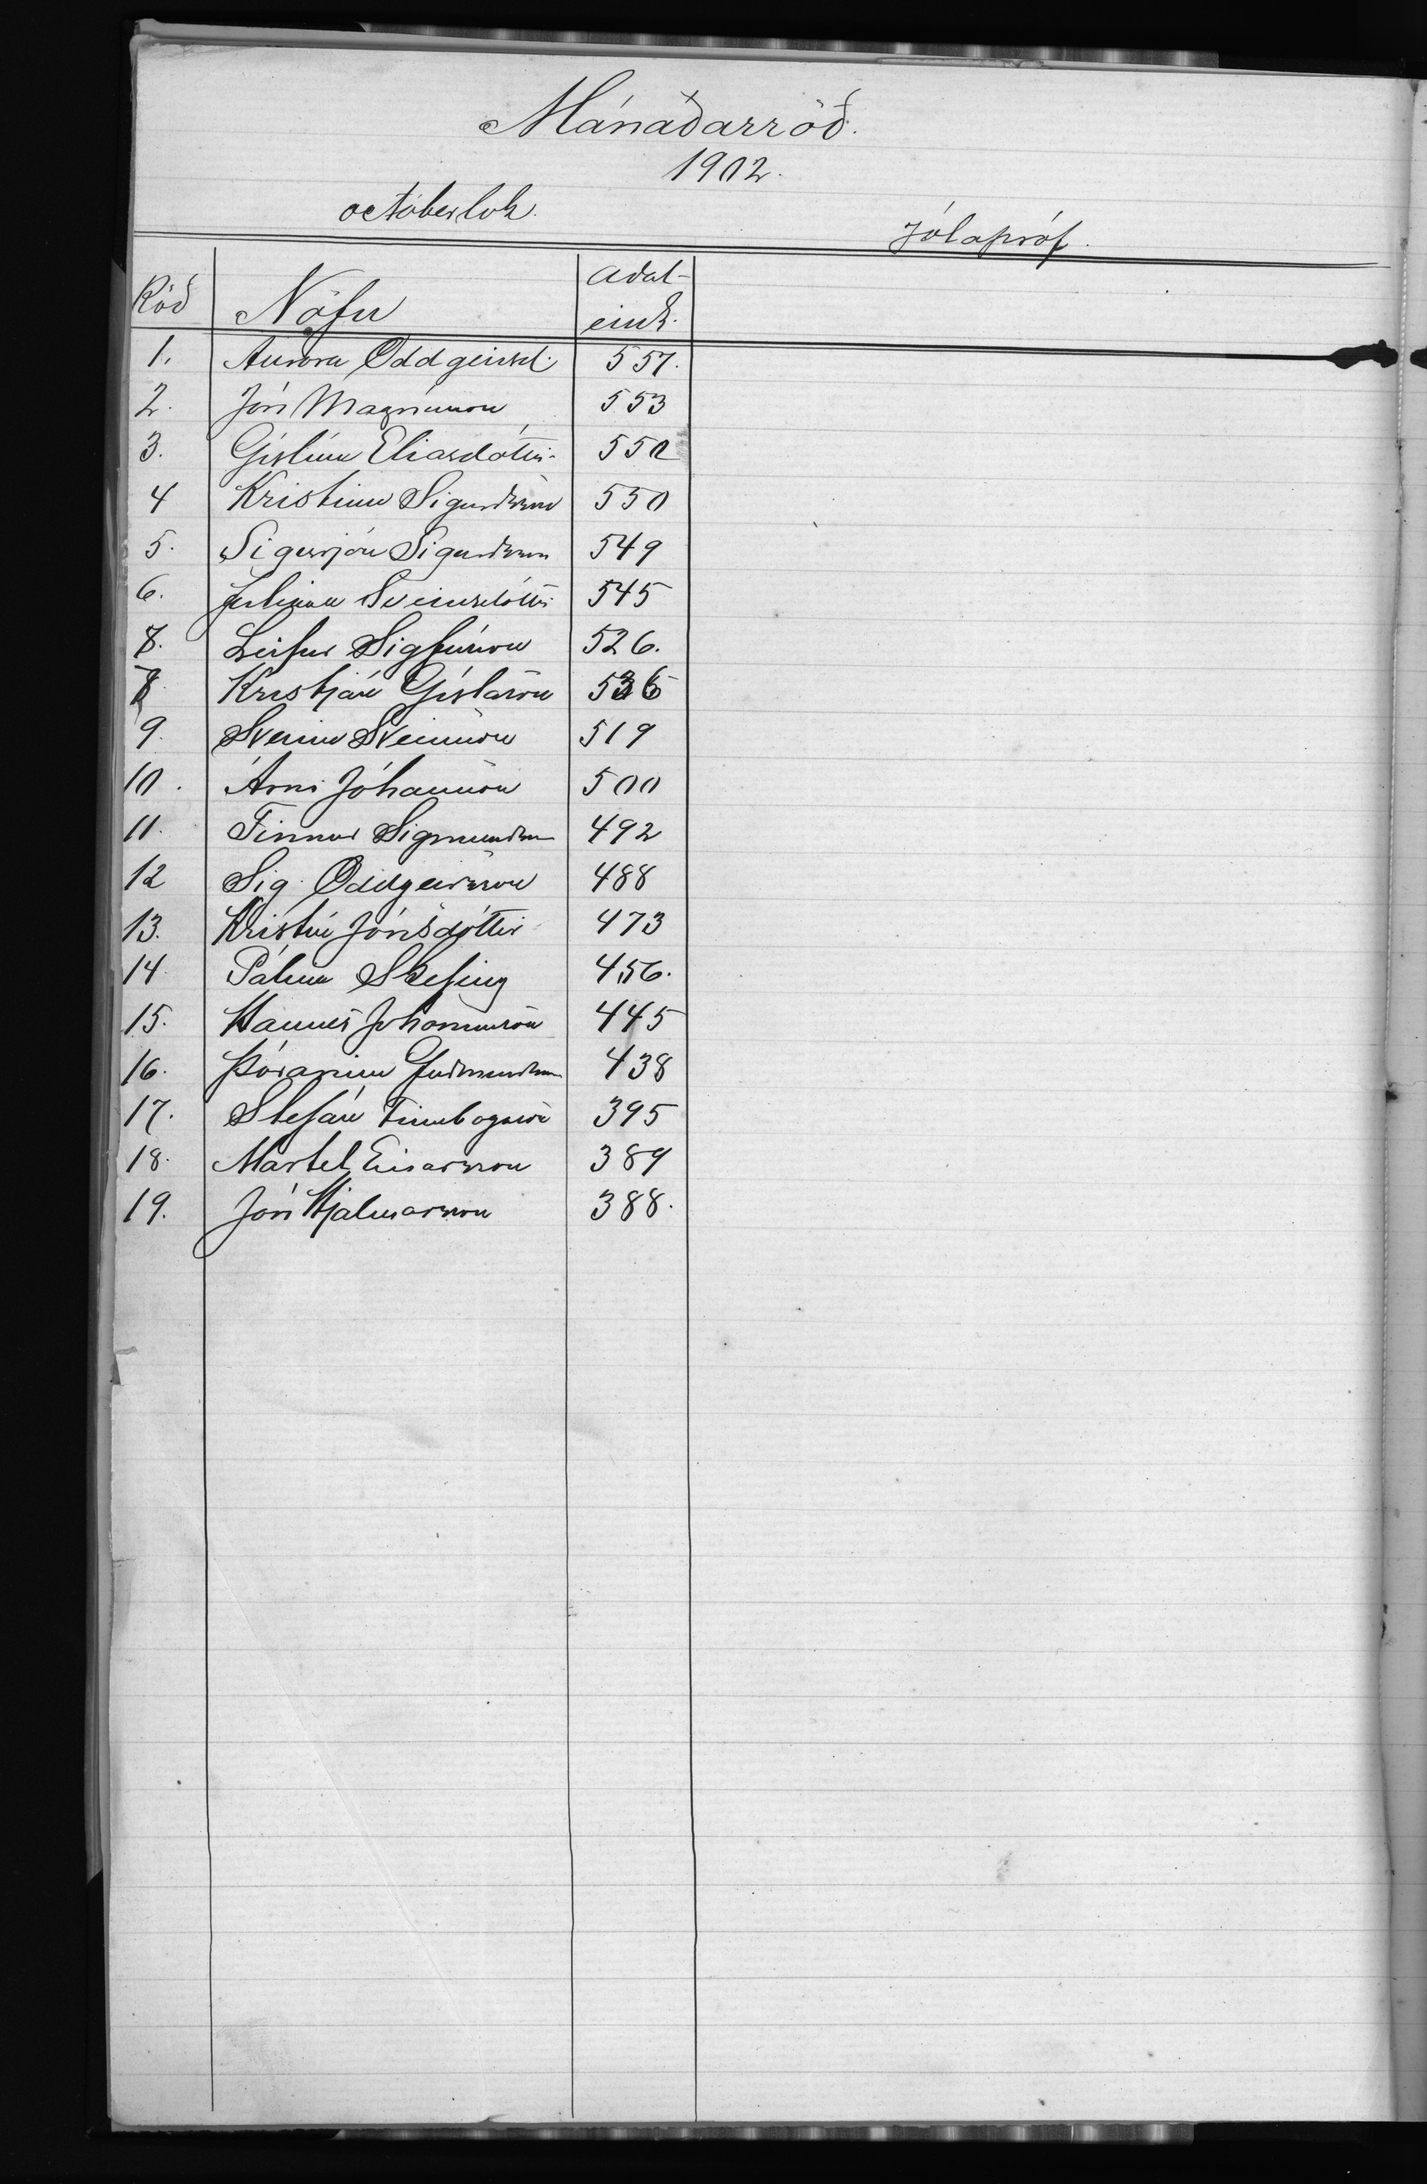 Mánaðarröð.
1902.
octóberlok.
Jólapróf.
Röð Nöfn Aðal-
eink.
1. Aurora Oddgeirsd. 557.
2. Jón Magnússon 553
3. Gíslína Elíasdóttir 550
4 Kristinn Sigurðsson 550
5. Sigurjón Sigurðsson 549
6. Juliana Sveinsdóttir 545
8. Leifur Sigfússon 526.
7 Kristján Gíslason 536
9. Sveinn Sveinsson 519
10. Árni Jóhannsson 500
11. Finnur Sigmundsson 492
12 Sig. Oddgeirsson 488
13. Kristín Jónsdóttir 473
14 Pálina Scheving 456.
15. Hannes Johannsson 445
16. Þórarinn Guðmundsson 438
17. Stefán Finnbogason 395
18. Martel Einarsson 389
19. Jón Hjalmarsson 388.